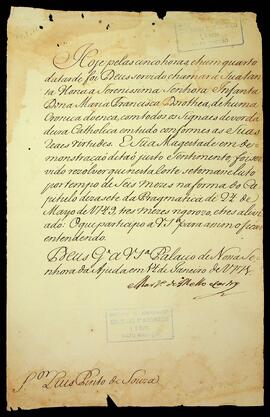 Hoje pelas cinco horas e hum quarto
da tarde foi Deus servido chamar á Sua San
ta Gloria a Serenissima Senhora Infanta
Dona Maria Francisca Dorothea, de huma
Cronica doença, com todos os Signaes de verda
deira Catholica em tudo conformes as Suas
Reaes virtudes. E Sua Magestade em de-
monstração de taõ justo Sentimento foi ser
vido rezolver que nesta Corte se tome o luto
por tempo de Seis mezes na forma do Ca
pitulo dezasete da Pragmatica de 24 de
Mayo de 1749, tres mezes rigorozo, e tres alivi
ado: O que participo a V. S.ª para assim o ficar
entendendo.
Deus G.e a V. S.ª Palacio de Nossa Se-
nhora da Ajuda em 14 de Janeiro de 1771
Mart.º de Mello e Castro
S.or Luis Pinto de Souza